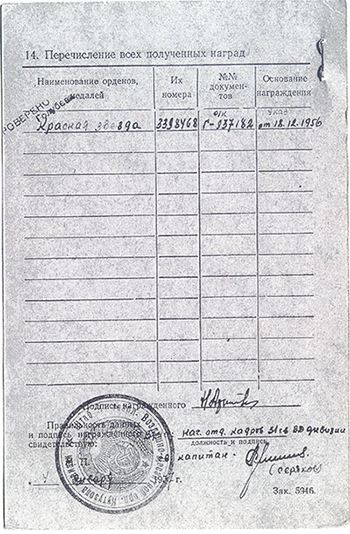 14. Перечисление всех полученных наград
Наименование орденов, медалей
Их номера
№№ документов
Основание награждения
ПРОВЕРЕНО
о/к
Указ
Красная звезда 3398468 Г-937182 от 18.12.1956
Подпись награжденного
Правильность данных
и подпись награжденного
свидетельствую:
нач. отд. кадров
дивизии
должность и подпись
капитан -
(Серяков)
января
Зак. 5946.